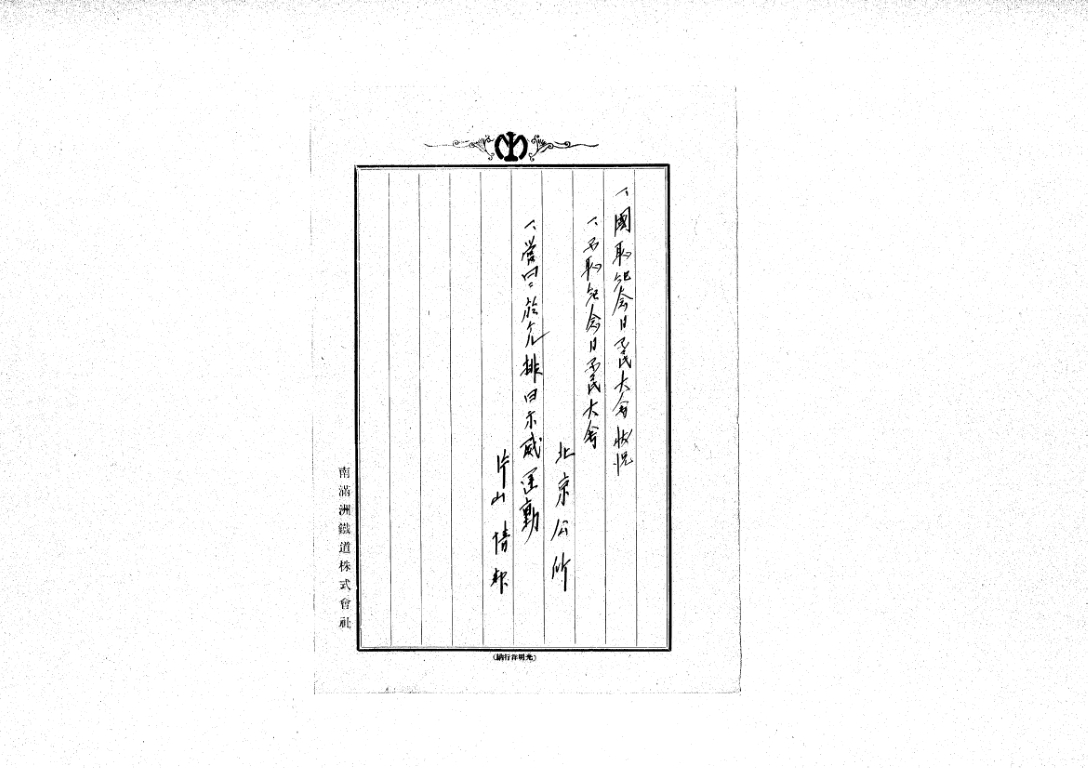 一、國恥紀念日国民大會狀況
一、国恥紀念日国民大會
北京公所
一、營口ニ於ケル排日示威運動
片山情報
南滿洲鐵道株式會社
(光明洋行納)